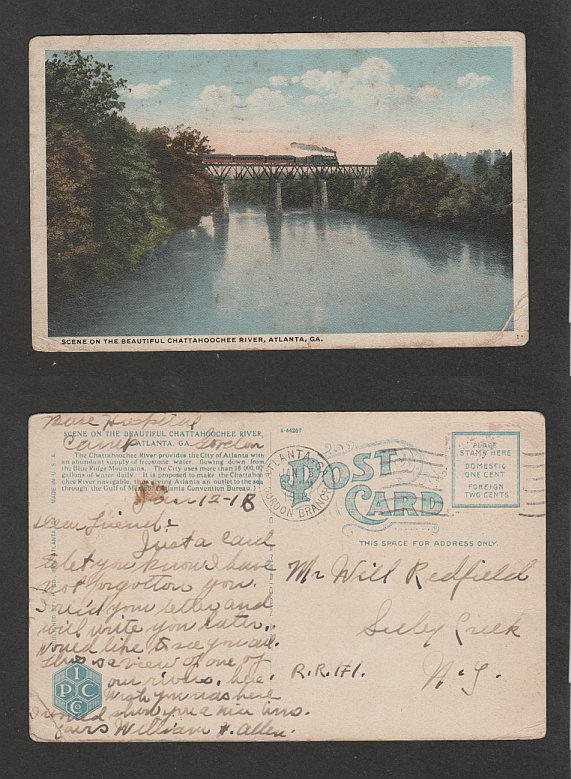 SCENE ON THE BEAUTIFUL CHATTAHOOCHEE RIVER, ATLANTA, GA.
Base Hospital
Camp Gordon
SCENE ON THE BEAUTIFUL CHATTAHOOCHEE RIVER,
ATLANTA, GA.
The Chattahoochee River provides the City of Atlanta with
an abundant supply of freestone water, flowing down from
the Blue Ridge Mountains. The City uses more than 18,000,00
gallons of water daily. It is proposed to make the Chattahoo
chee River navigable, thus giving Atlanta an outlet to the sea
through the Gulf of M Atlanta Convention Bureau.)
Jan 12-18
Dear Friend:-
Just a Card
to let you know I have
not forgotten you.
I rec'd your letter and
will write you later.
Would like to see you all.
This is a view of one of
our rivers, here.
Wish you was here
I would show you a nice time.
Yours William H. Allen.
I
P C
Co
MADE IN U.S.A.
A-44267
ATLANTA, GA.
GORDON BRANCH
POST
CARD
THIS SPACE FOR ADDRESS ONLY.
PLACE
STAMPS HERE
DOMESTIC
ONE CENT
FOREIGN
TWO CENTS
Mr Will Redfield
Seeley Creek
R.R.#1.
N.Y.